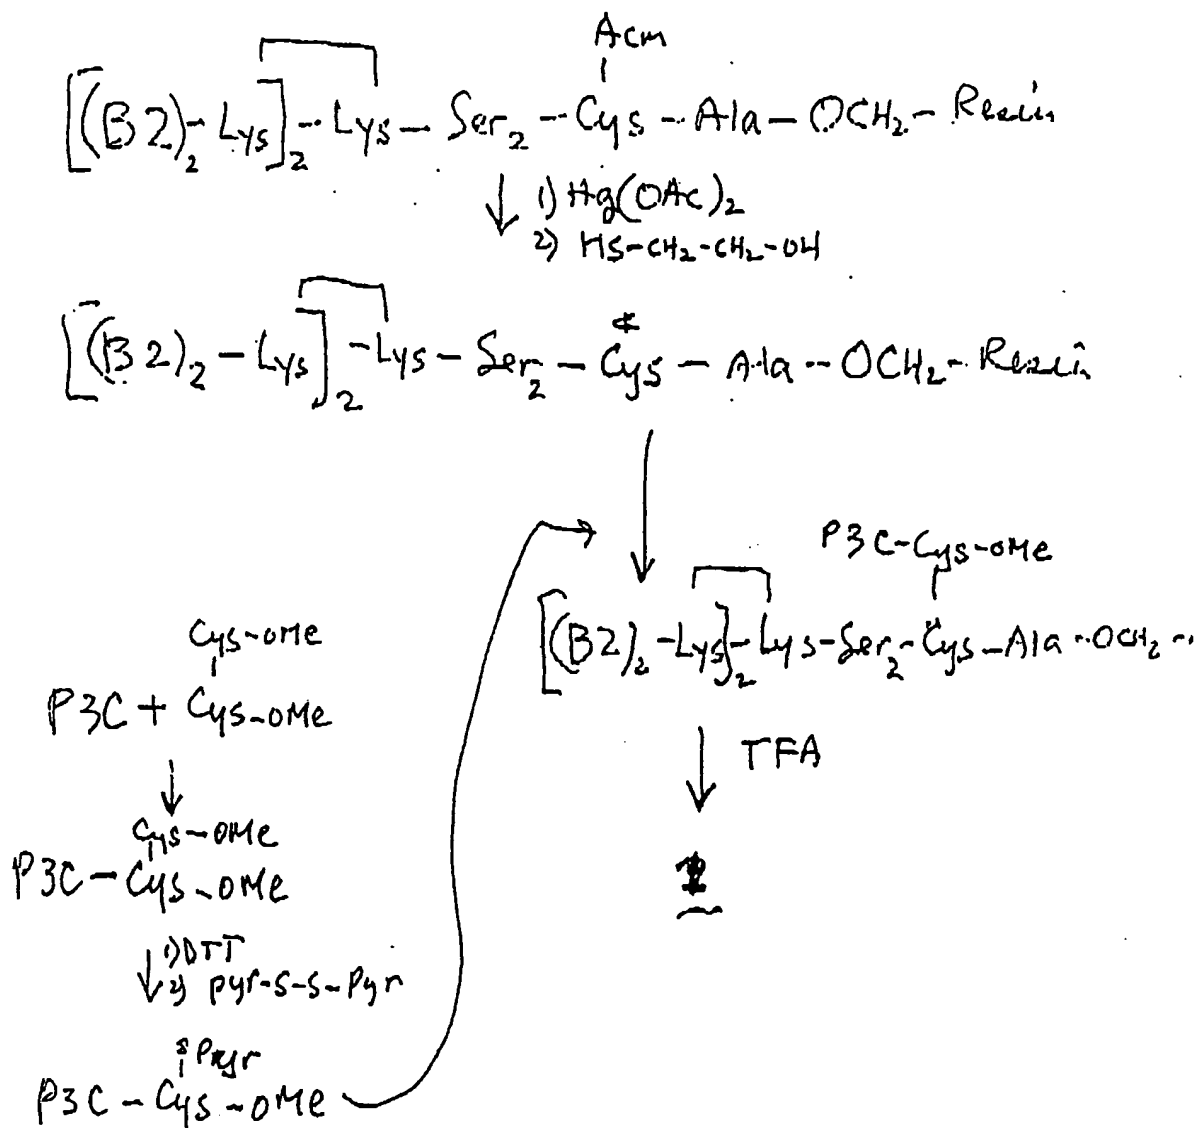 Acm
[(B2)₂-Lys]₂-Lys-Ser₂-Cys-Ala-OCH₂-Resin
1) Hg(OAc)₂
2) HS-CH₂-CH₂-OH
[(B2)₂-Lys]₂-Lys-Ser₂-Cys-Ala-OCH₂-Resin
P3C-Cys-OMe
[(B2)₂-Lys]₂-Lys-Ser₂-Cys-Ala-OCH₂-
Cys-OMe
P3C + Cys-OMe
TFA
Cys-OMe
P3C-Cys-OMe
1) DTT
2) pyr-S-S-Pyr
P3C-Cys-OMe